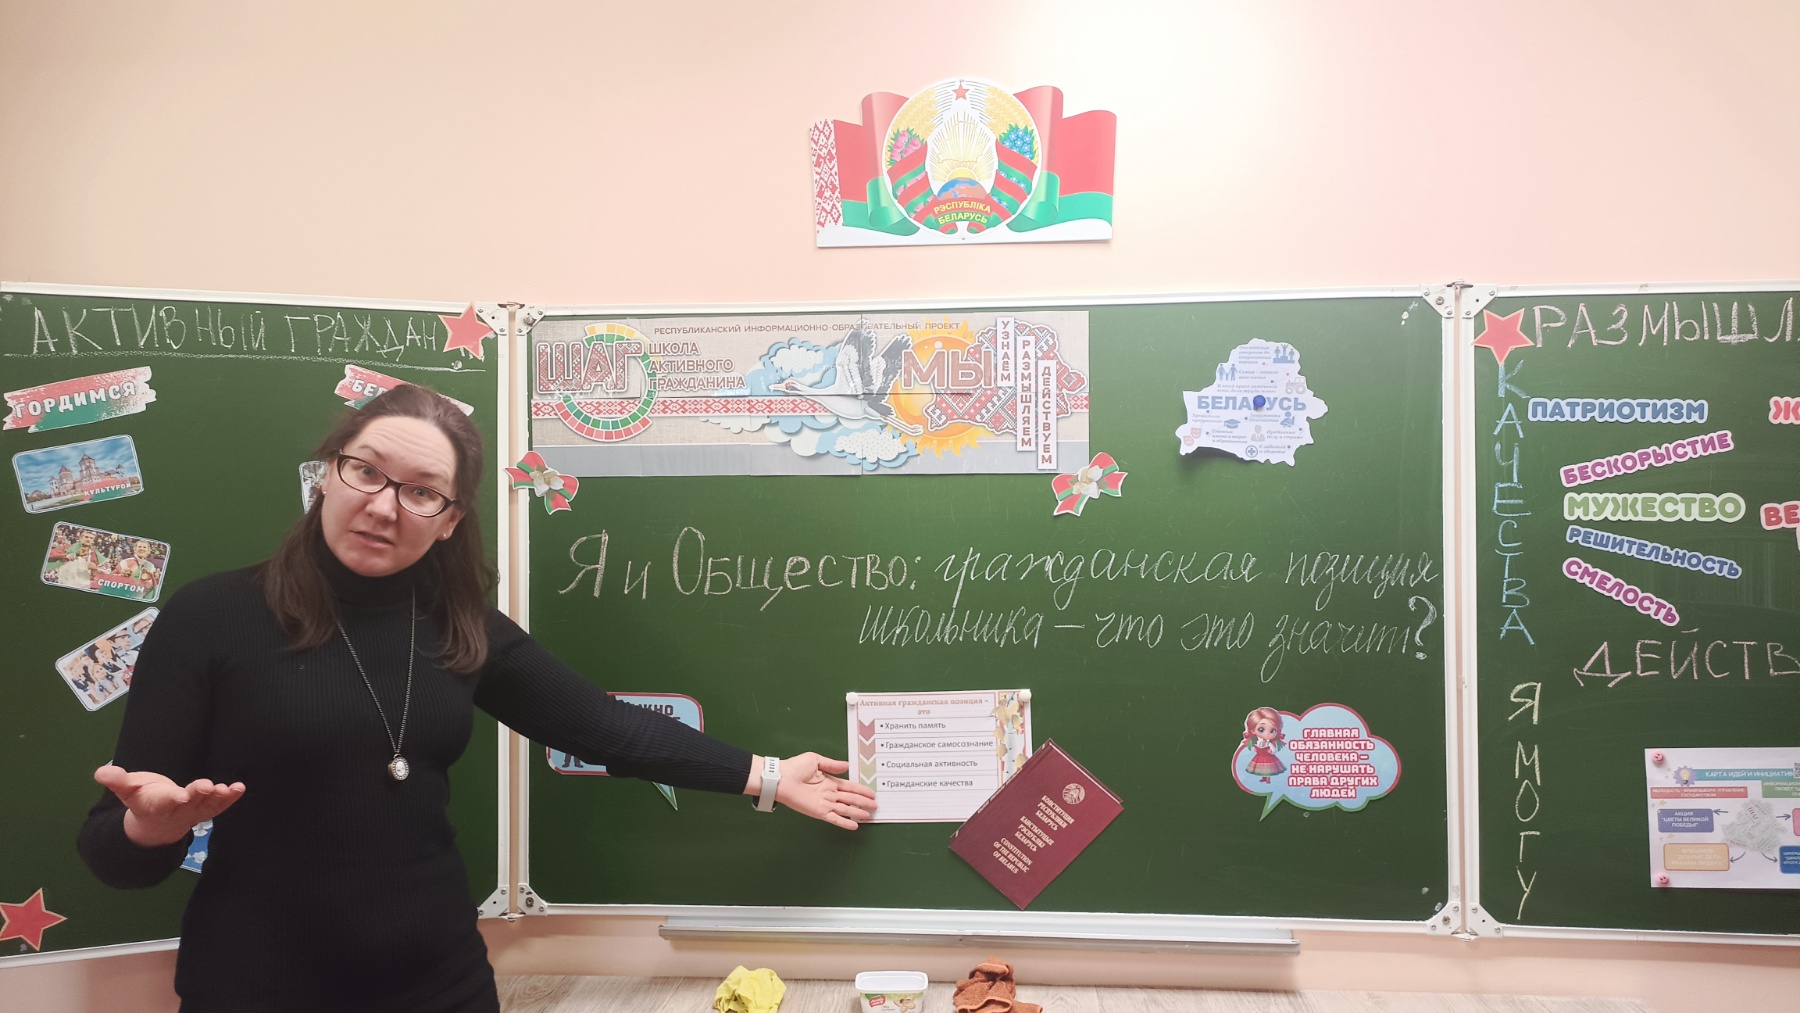 РЭСПУБЛІКА
БЕЛАРУСЬ
АКТИВНЫЙ ГРАЖДАН
ГОРДИМСЯ
КУЛЬТУРОЙ
СПОРТОМ
РЕСПУБЛИКАНСКИЙ ИНФОРМАЦИОННО-ОБРАЗОВАТЕЛЬНЫЙ ПРОЕКТ
ШАГ
ШКОЛА
АКТИВНОГО
ГРАЖДАНИНА
МЫ
УЗНАЁМ
РАЗМЫШЛЯЕМ
ДЕЙСТВУЕМ
БЕЛАРУСЬ
Я и Общество: гражданская позиция
школьника – что это значит?
Активная гражданская позиция -
это
• Хранить память
• Гражданское самосознание
• Социальная активность
• Гражданские качества
КОНСТИТУЦИЯ
РЕСПУБЛИКИ
БЕЛАРУСЬ
КАНСТЫТУЦЫЯ
РЭСПУБЛІКІ
БЕЛАРУСЬ
CONSTITUTION
OF THE REPUBLIC
OF BELARUS
ГЛАВНАЯ
ОБЯЗАННОСТЬ
ЧЕЛОВЕКА –
НЕ НАРУШАТЬ
ПРАВА ДРУГИХ
ЛЮДЕЙ
РАЗМЫШЛ
КАЧЕСТВА
ПАТРИОТИЗМ
БЕСКОРЫСТИЕ
МУЖЕСТВО
РЕШИТЕЛЬНОСТЬ
СМЕЛОСТЬ
ДЕЙСТВ
Я МОГУ
КАРТА ИДЕЙ И ИНИЦИАТИВ
АКЦИЯ
"ЦВЕТЫ ВЕЛИКОЙ
ПОБЕДЫ"